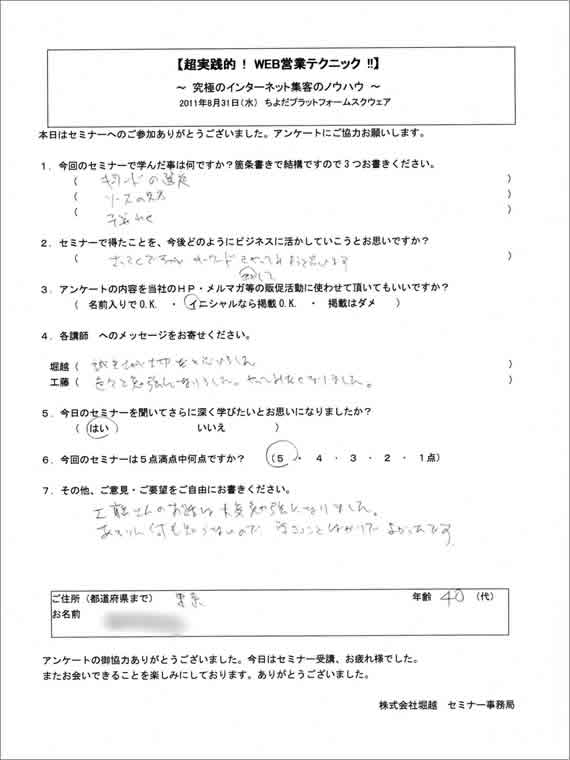 【超実践的！ WEB営業テクニック !!】
～ 究極のインターネット集客のノウハウ ～
2011年8月31日(水) ちよだプラットフォームスクウェア
本日はセミナーへのご参加ありがとうございました。アンケートにご協力お願いします。
1．今回のセミナーで学んだ事は何ですか？箇条書きで結構ですので3つお書きください。
( キーワードの選定 )
( )
( )
2．セミナーで得たことを、今後どのようにビジネスに活かしていこうとお思いですか？
( さっそく キーワード )
3．アンケートの内容を当社のＨＰ・メルマガ等の販促活動に使わせて頂いてもいいですか？
( 名前入りでO.K. ・ イニシャルなら掲載O.K. ・ 掲載はダメ )
4．各講師 へのメッセージをお寄せください。
堀越 ( 大切 思いました )
工藤 ( 色々と勉強になりました。 なりました。 )
5．今日のセミナーを聞いてさらに深く学びたいとお思いになりましたか？
( はい ) いいえ )
6．今回のセミナーは5点満点中何点ですか？ (5 ・ 4 ・ 3 ・ 2 ・ 1点)
7．その他、ご意見・ご要望をご自由にお書きください。
工藤さんのお話は大変勉強になりました。
何も知らないので、 よかったです
ご住所（都道府県まで） 東京 年齢 40 (代)
お名前
アンケートの御協力ありがとうございました。今日はセミナー受講、お疲れ様でした。
またお会いできることを楽しみにしております。ありがとうございました。
株式会社堀越 セミナー事務局